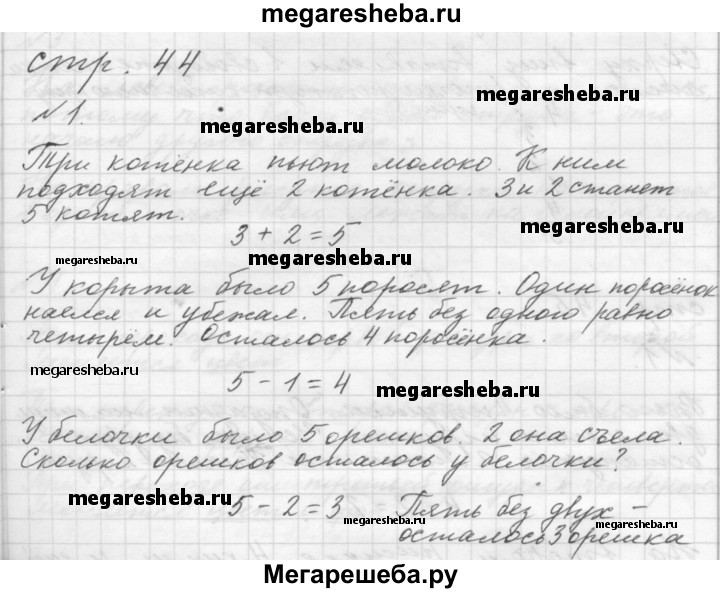 megaresheba.ru
стр. 44
№1.
megaresheba.ru
Три котёнка пьют молоко. К ним
подходят ещё 2 котёнка. 3 и 2 станет
5 котят.
3 + 2 = 5
megaresheba.ru
megaresheba.ru
У корыта было 5 поросят. Один поросёнок
наелся и убежал. Пять без одного равно
четырём. Осталось 4 поросёнка.
megaresheba.ru
5 - 1 = 4
megaresheba.ru
У белочки было 5 орешков. 2 она съела.
Сколько орешков осталось у белочки?
megaresheba.ru
5 - 2 = 3 - Пять без двух -
megaresheba.ru
megaresheba.ru
осталось 3 орешка
Мегарешеба.ру